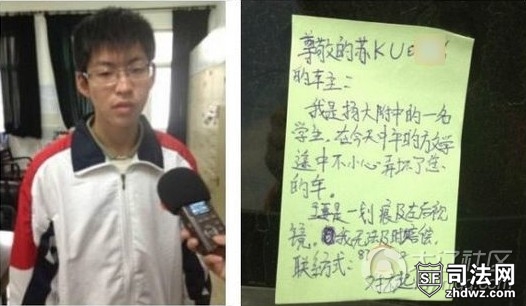 尊敬的苏KUE
的车主：
我是扬大附中的一名
学生，在今天中午的放学
途中不小心弄坏了您
的车。
主要是一划痕及左后视
镜。我无法及时赔偿，
联系方式：
对不起
社区
SF 司法网
zhdwz.com